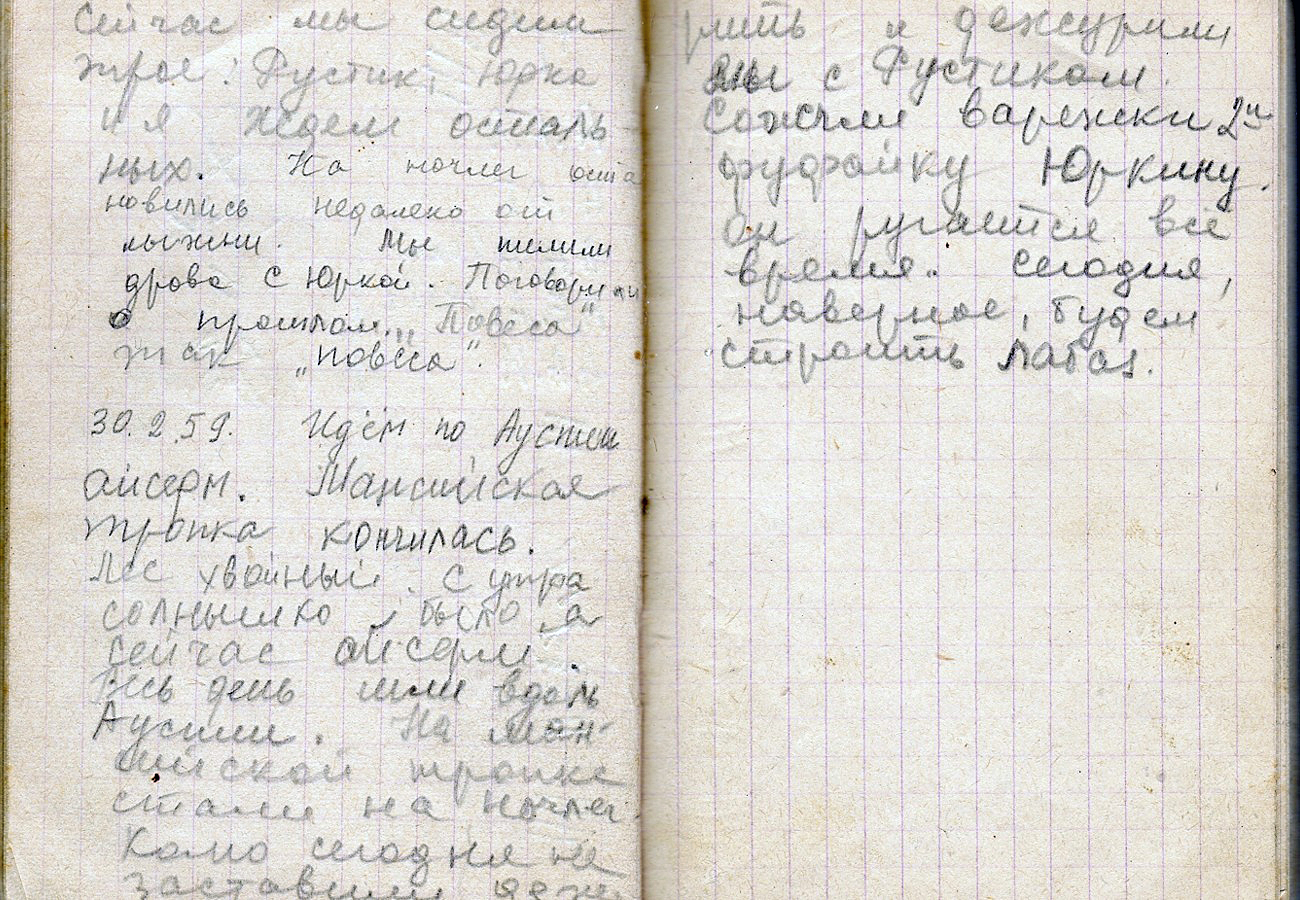 Сейчас мы сидим
трое: Рустик, Юрка
и я. Ждем осталь-
ных. На ночлег оста
новились недалеко от
лыжни. Мы пилили
дрова с Юркой. Поговорили
о прошлом. „Повеса"
так „повеса".
30.2.59. Идём по Ауспии
айсерм. Мансийская
тропка кончилась.
Лес хвойный. С утра
солнышко было, а
сейчас айсерм.
Весь день шли вдоль
Ауспии. На ман-
сийской тропке
стали на ночлег.
Колю сегодня не
заставили деж
рить и дежурили
мы с Рустиком.
Сожгли варежки 2ую
фуфайку Юркину.
Он ругается все
время. Сегодня,
наверное, будем
строить лабаз.